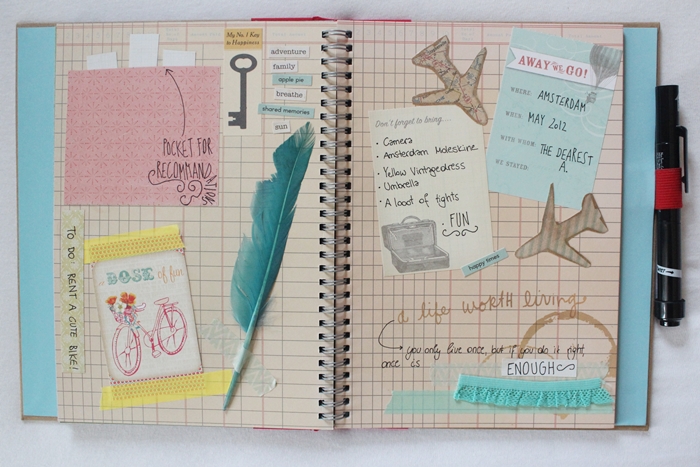 My No. 1 Key
to Happiness
adventure
family
apple pie
breathe
shared memories
sun
POCKET FOR
RECOMMANDATIONS
TO DO: RENT A CUTE BIKE!
DOSE of fun
AWAY WE GO!
WHERE: AMSTERDAM
WHEN: MAY 2012
WITH WHOM: THE DEAREST
A.
WE STAYED:
Don't forget to bring....
• Camera
• Amsterdam Moleskine
• Yellow Vintagedress
• Umbrella
• A loot of tights
• FUN
happy times
a life worth living
you only live once, but if you do it right,
once is
ENOUGH